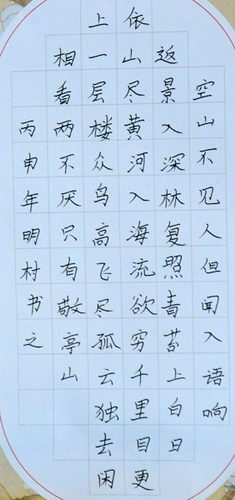 空山不见人但闻人语响
返景入深林复照青苔上白日
依山尽黄河入海流欲穷千里目更
上一层楼众鸟高飞尽孤云独去闲
相看两不厌只有敬亭山
丙申年明村书之